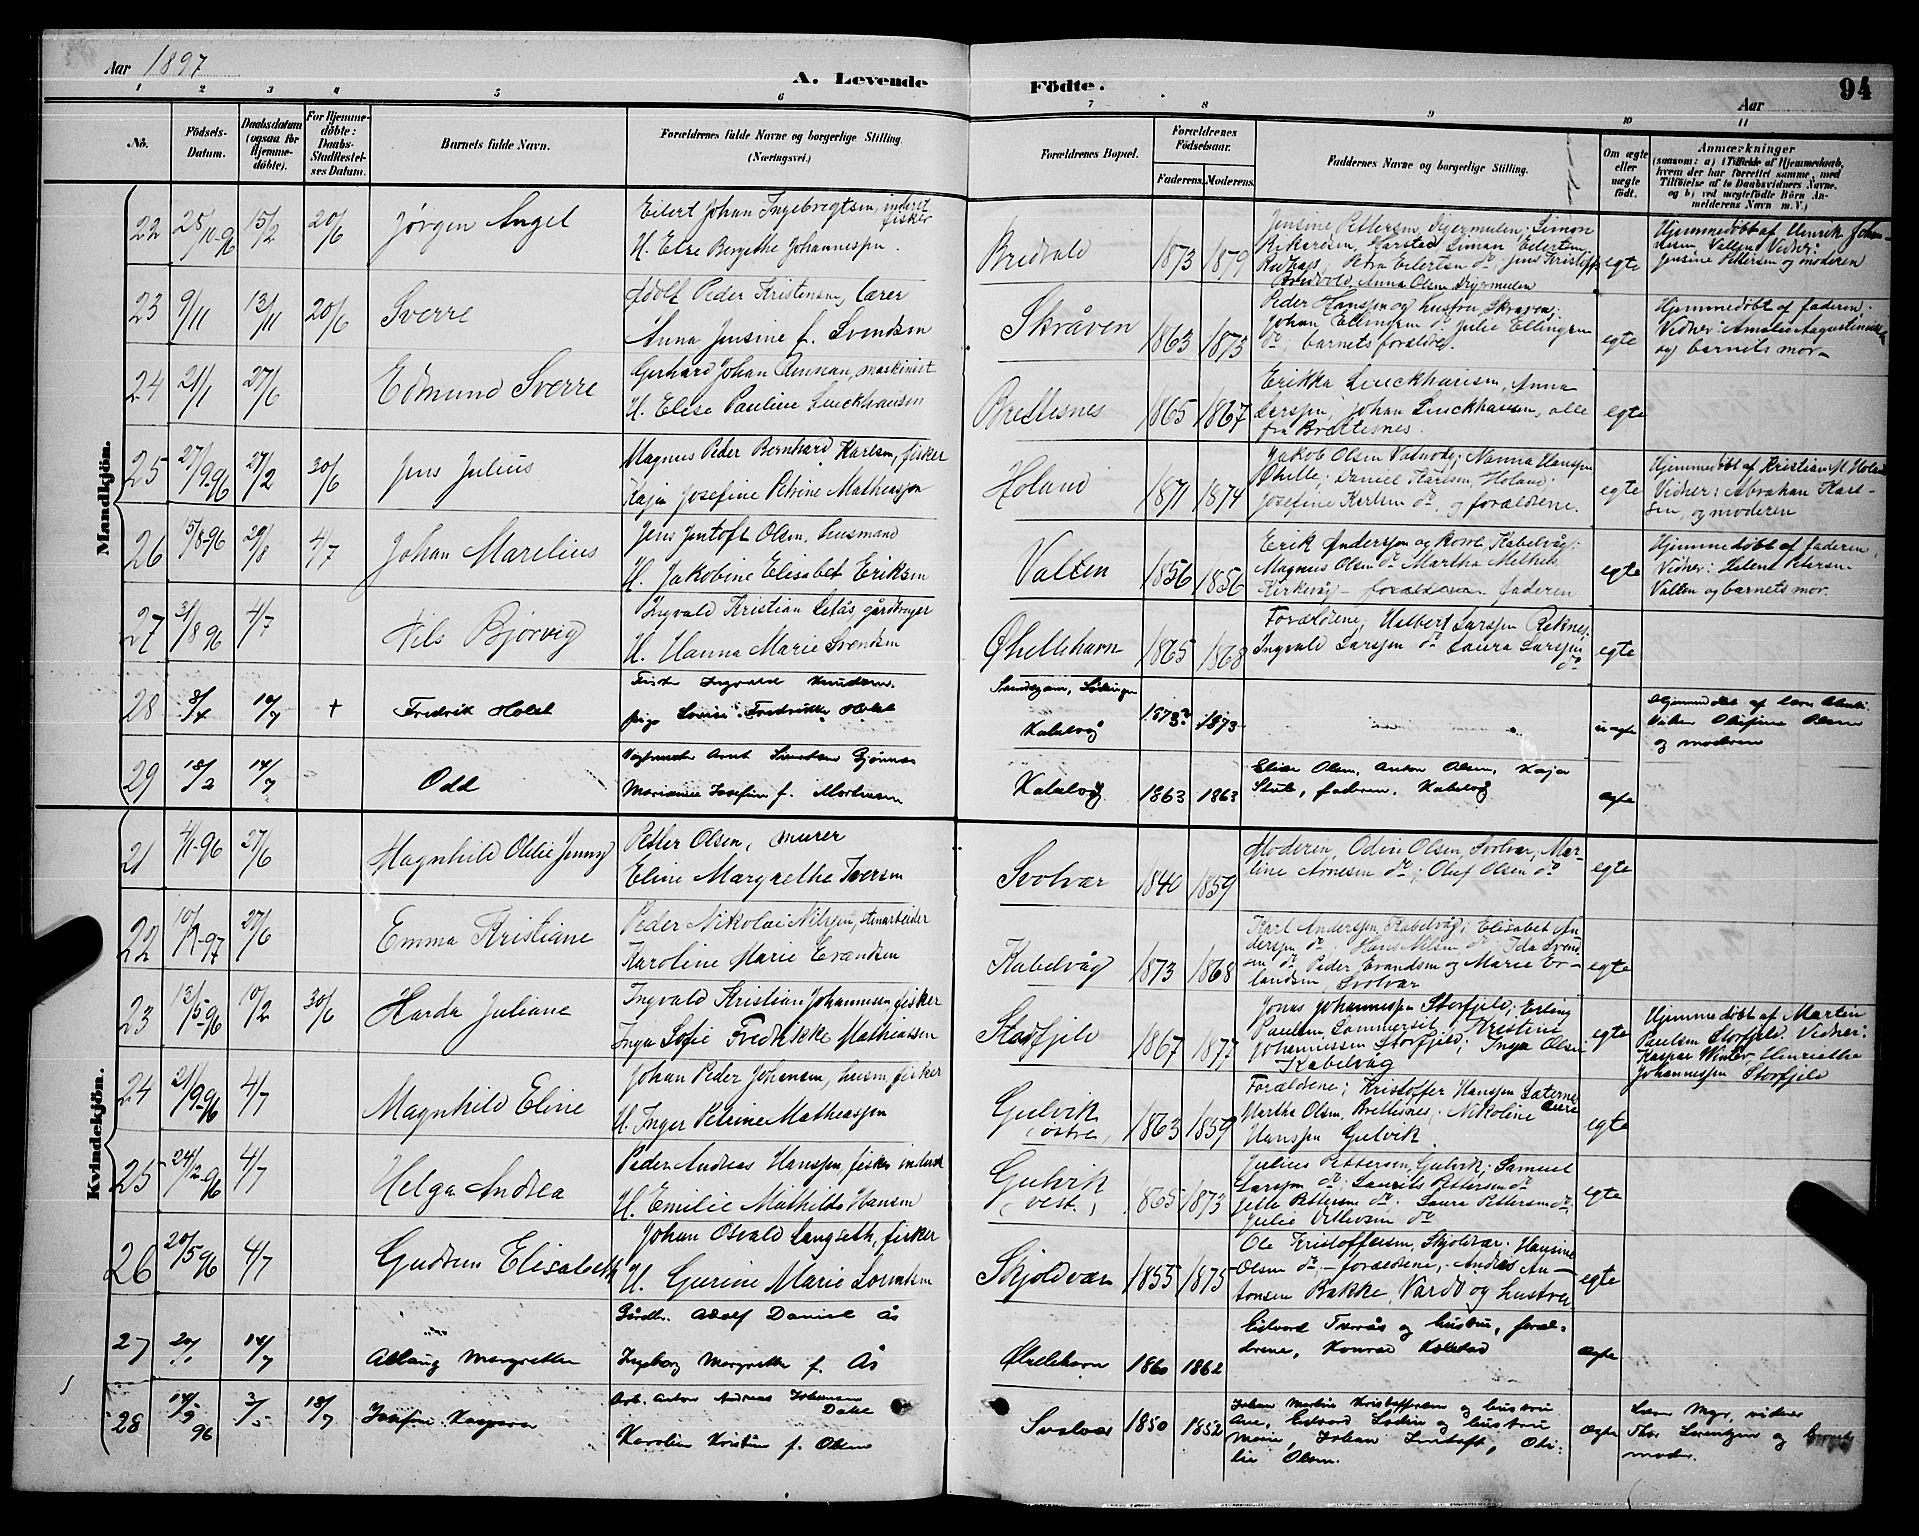 Aar 1897
A. Levende Födte.
94
Aar
1 2 3 4 5 6 7 8 9 10 11
No.
Födsels-Datum.
Daabsdatum (ogsaa for Hjemmedöbte).
For Hjemmedöbte: Daabs-Stadfæstelses Datum.
Barnets fulde Navn.
Forældrenes fulde Navne og borgerlige Stilling.
(Næringsvei.)
Forældrenes Bopæl.
Forældrenes Födselsaar.
Faderens. Moderens.
Faddernes Navne og borgerlige Stilling.
Om ægte eller uægte födt.
Anmærkninger
(saasom: a) i Tilfælde af Hjemmedaab, hvem der har forrettet samme, med Tilföielse af to Daabsvidners Navne, og b) ved uegtefödte Börn Anmelderens Navn m. V.)
Mandkjön.
22 25/11-96 15/2 20/6 Jørgen Angel
Eilert Johan Ingebrigtsen, inderst fisker
H. Else Bergethe Johannessen.
Bredvold 1873 1879
Jensine Pettersen Digermulen, Simon
Rikardsen, Harstad, Simon Eilertsen
Petra Eilertsen do; Jens Kristoffs
Bredvold, Anna Olsen Digermulen
egte
Hjemmedøbt af Henrik Johansen Vallen Vidner:
Jensine Pettersen og moderen
23 9/11 13/11 20/6 Sverre
Adolf Peder Kristensen, lærer
Anna Jensine f. Svendsen
Skråven 1863 1873
Peder Hanssen og hustru Skraaven;
Johan Ellingsen do Julie Ellingsen
do; barnets forældre.
egte
Hjemmedøbt af faderen;
Vidner: Amalie Augustinusen
og barnets mor-
24 21/1 27/6 Edmund Sverre
Gerhard Johan Rennan, maskinist
H. Elise Pauline Luckhausen
Brettesnes 1865 1867
Erikka Luckhausen, Anna
Larssen, Johan Luckhausen, alle
fra Brettesnes.
egte
25 27/9 96 27/2 30/6 Jens Julius
Magnus Peder Bernhard Karlsen, fisker
Kaja Josefine Petrine Mathiassen
Holand 1871 1874
Jakob Olsen Vatnode; Nanna Hanssen
Ørhelle; Daniel Karlsen, Holand;
Josefine Karlsen do, og forældrene.
egte
Hjemmedøbt af Kristian M. Holand
Vidner: Abraham Karlsen, og moderen
26 15/8-96 29/8 4/7 Johan Marelius
Jens Jentoft Olsen, husmand
H. Jakobine Elisabet Eriksen
Vallen 1856 1856
Erik Anderssen og kone Kabelvåg;
Magnus Olsen do Martha
Kirkevåg - faderen
egte
Hjemmedøbt af faderen,
Vidner: Helene Petersen
Vallen og barnets mor.
27 3/8 96 4/7 Nils Bjørvig
Ingvald Kristian Letås, gårdbruger
H. Hanna Marie Svendsen
Ørhellehavn 1865 1868
Forældrene, Halbert Larssen Reknes,
Ingvald Larssen do Laura Larssen
do
egte
28 8/4 14/7 + Fredrik Holst
Fisker Ingvald Knudsen.
pige Lovise Fredrikke Holst
Kabelvåg 1873? 1873
uegte
Hjemmedøbt af
Vidner Olufine Olsen
og moderen
29 18/2 14/7 Odd
Vognmand Arnt Sivertsen Gjønnes
Marianne Josefine f. Mortensen
Kabelvåg 1863 1863
Elise Olsen, Anton Olsen, Kaja
faderen, Kabelvåg
ægte
Kvindekjön.
21 4/1-96 27/6 Magnhild Oldie Jenny
Petter Olsen, murer
Eline Margrethe Iversen
Svolvær 1840 1859
Moderen, Odin Olsen, Svolvær, Marline Arnesen do; Oluf Olsen do
egte
22 10/2-97 27/6 Emma Kristiane
Peder Nikolai Nilsen, stenarbeider
Karoline Marie Evandsen
Kabelvåg 1873 1868
Karl Anderssen, Kabelvåg; Elisabet Anderssen do; Hans Nilsen do Ida Svendsen do Peder Evandsen og Marie Erlandsen, Svolvær
egte
23 13/5-96 10/2 30/6 Harda Juliane
Ingvald Kristian Johannesen, fisker
Inga Sofie Fredrikke Mathiassen
Storfjeld 1867 1877
Jonas Johannessen Storfjeld; Erling
Paulsen Sommerset, Kristine
Johannessen Storfjeld; Inga Olsen
Kabelvåg
egte
Hjemmedøbt af Martin
Paulsen Storfjeld. Vidner:
Kaspar Winter Henriette
Johannessen Storfjeld
24 21/9-96 4/7 Magnhild Eline
Johan Peder Johansen, husm. fisker
H. Inger Petrine Mathiassen
Gulvik (østre) 1863 1859
Forældrene; Kristoffer Hanssen
Martha Olsen, Brettesnes; Nikoline
Hanssen Gulvik.
egte
25 24/12-96 4/7 Helga Andrea
Peder Andreas Hanssen, fisker inderst
H. Emilie Mathilde Hansen
Gulvik (vest.) 1865 1873
Julius Pettersen, Gulvik; Samuel
Larssen do; Laurits Pettersen do
Jette Pettersen do; Laura Pettersen do;
Julie do
egte
26 20/5 96 4/7 Gudrun Elisabeth
Johan Osvald Langseth, fisker
H. Gurine Marie Lorentsen
Skjoldvær 1855 1875
Ole Kristoffersen, Skjoldvær. Hansine
Olsen do; - forældrene, Andreas Antonsen Bakke, Vardø og hustru
egte
27 20/1 14/7 Aslaug Margrethe
Gårdbr. Adolf Daniel Ås
Ingeborg Margrethe f. Ås
Ørhellehavn 1860 1862
Edvard og hustru, forældrene, Konrad
ægte
28 14/9 96 3/5 18/7 Josefine Kaspara
Arb. Anton Andreas Johansen Dahl
Karoline Kristine f. Olsen
Svolvær 1850 1852
Johan Martin Kristoffersen og hustru
Ane, Edvard og hustru
Marie, Johan Jentoft, Otilie Olsen.
ægte
Thor Lorentzen og barnets
moder.